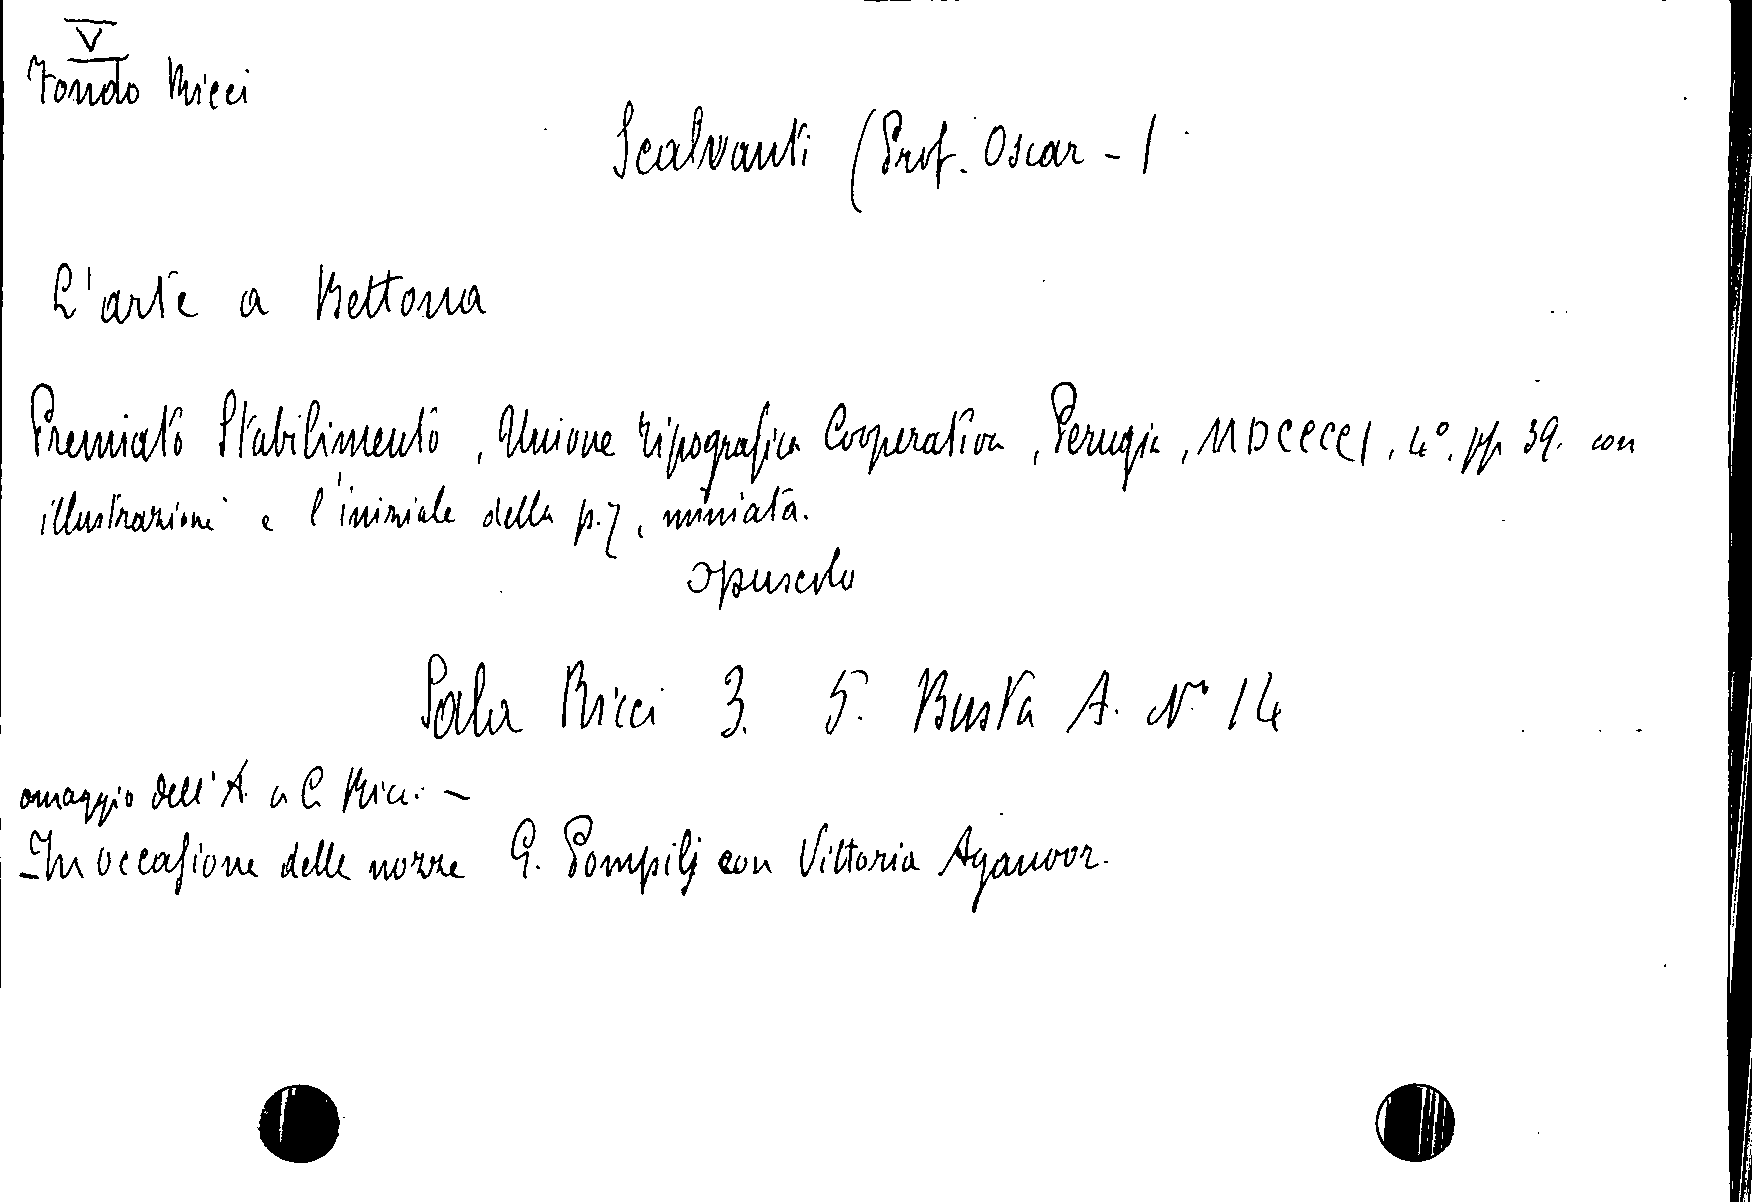 V
Fondo Ricci
Scalvanti (Prof. Oscar - )
L'arte a Bettona
Premiato Stabilimento, Unione Tipografica Cooperativa, Perugia, MDCCCCI, 4°, pp 39. con
illustrazioni e l'iniziale della p. 7, miniata.
opuscolo
Sala Ricci 3. 5. Busta A. N° 14
omaggio dell'A. a C. Ricci. -
In occasione delle nozze G. Pompilj con Vittoria Aganoor.